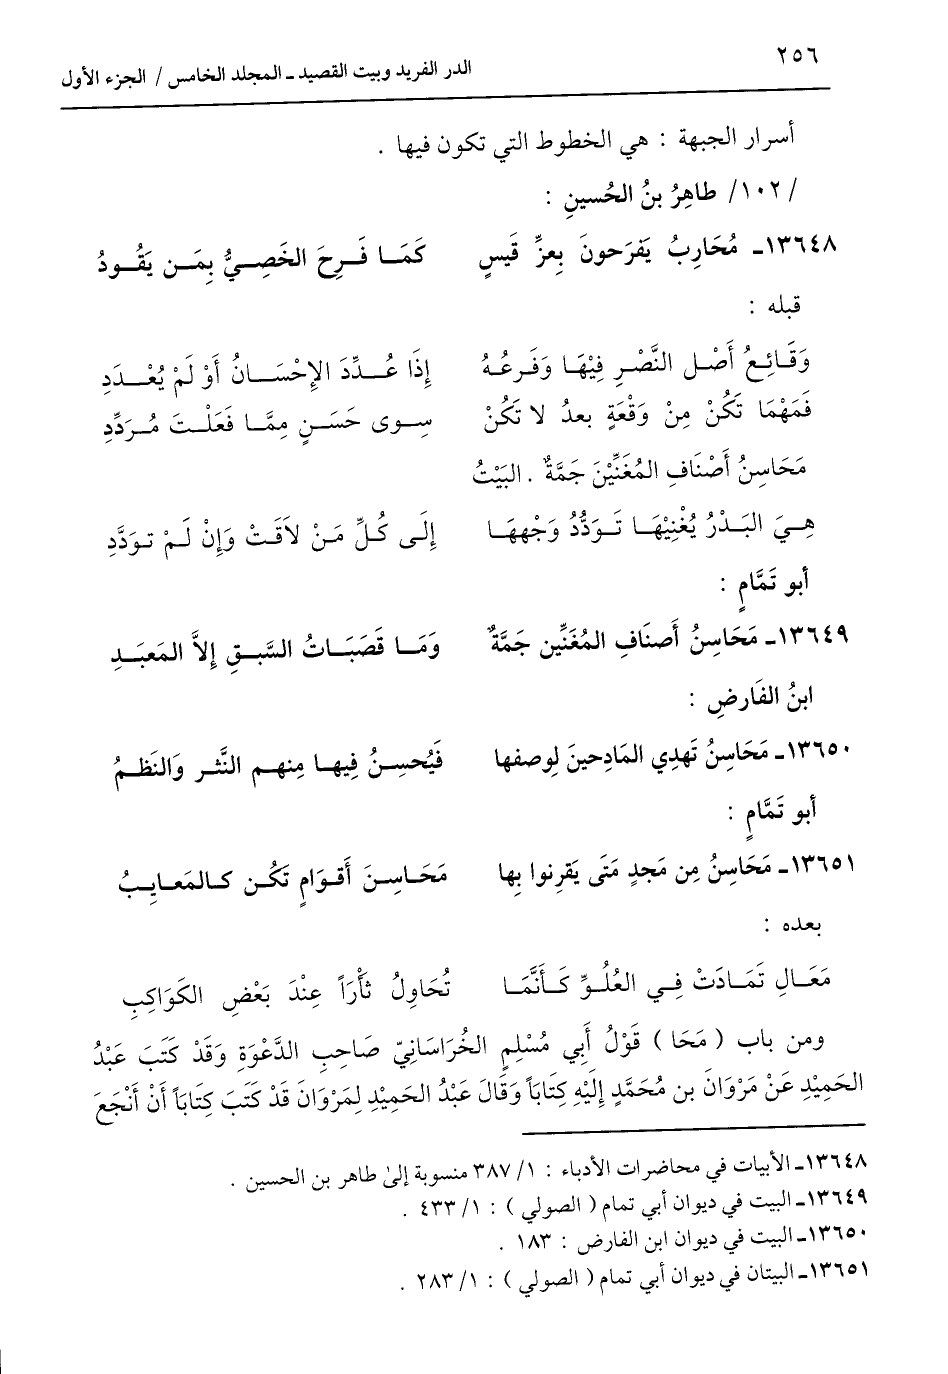 ٢٥٦
الدر الفريد وبيت القصيد ـ المجلد الخامس / الجزء الأول
أسرار الجبهة : هي الخطوط التي تكون فيها .
/ ١٠٢/ طاهِرُ بنُ الحُسينِ :
١٣٦٤٨ـ مُحَارِبُ يَفرَحونَ بِعزِّ قَيسٍ كَمَـا فَـرِحَ الخَصِـيُّ بِمَـن يَقُـودُ
قبله :
وَقَائِعُ أَصْـل النَّصْـرِ فِيْهَـا وَفَـرعُـهُ إِذَا عُـدِّدَ الإِحْسَـانُ أَوْ لَمْ يُعْـدَدِ
فَمَهْمَا تَكُنْ مِنْ وَقْعَةٍ بعدُ لا تَكُنْ سِـوى حَسَـنٍ مِمَّـا فَعَلْـتَ مُـرَدِّدِ
مَحَاسِنُ أَصْنَافِ المُغَنِّيْنَ جَمَّةٌ . البَيْتُ
هِـيَ البَـدْرُ يُغْنِيْهَـا تَـوَدُّدُ وَجْههَـا إِلَـى كُـلِّ مَـنْ لاَقَـتْ وَإِنْ لَـمْ تـودَّدِ
أبو تَمَّامٍ :
١٣٦٤٩ـ مَحَاسِنُ أَصنَافِ المُغَنِّين جَمَّةٌ وَمَـا قَصَبَـاتُ السَّبـقِ إِلاَّ المَعبَـدِ
ابنُ الفَارضِ :
١٣٦٥٠ـ مَحَاسِنُ تَهدِي المَادِحينَ لِوصفها فَيُحسِـنُ فِيهـا مِنهـم النَّثـر وَالنَظـمُ
أبو تَمَّامٍ :
١٣٦٥١ـ مَحَاسِنُ مِن مَجدٍ مَتَى يَقرِنوا بِها مَحَـاسِـنَ أَقـوَامٍ تَكُـن كـالمَعـايِـبُ
بعده :
مَعَـالِ تَمَـادَتْ فِـي العُلُـوِّ كَـأَنَّمَـا تُحَاوِلُ ثَأْرَاً عِنْدَ بَعْضِ الكَوَاكِبِ
ومن باب ( مَحَا ) قَوْلُ أَبِي مُسْلِمٍ الخُرَاسَانِيّ صَاحِبِ الدَّعْوَةِ وَقَدْ كَتَبَ عَبْدُ
الحَمِيْدِ عَنْ مَرْوَانَ بن مُحَمَّدٍ إِلَيْهِ كِتَابَاً وَقَالَ عَبْدُ الحَمِيْدِ لِمَرْوَانَ قَدْ كَتَبَ كِتَابَاً أَنْ أَنْجَعَ
١٣٦٤٨ـ الأبيات في محاضرات الأدباء : ١/ ٣٨٧ منسوبة إلى طاهر بن الحسين .
١٣٦٤٩ـ البيت في ديوان أبي تمام ( الصولي ) : ١/ ٤٣٣ .
١٣٦٥٠ـ البيت في ديوان ابن الفارض : ١٨٣ .
١٣٦٥١ـ البيتان في ديوان أبي تمام ( الصولي ) : ١/ ٢٨٣ .